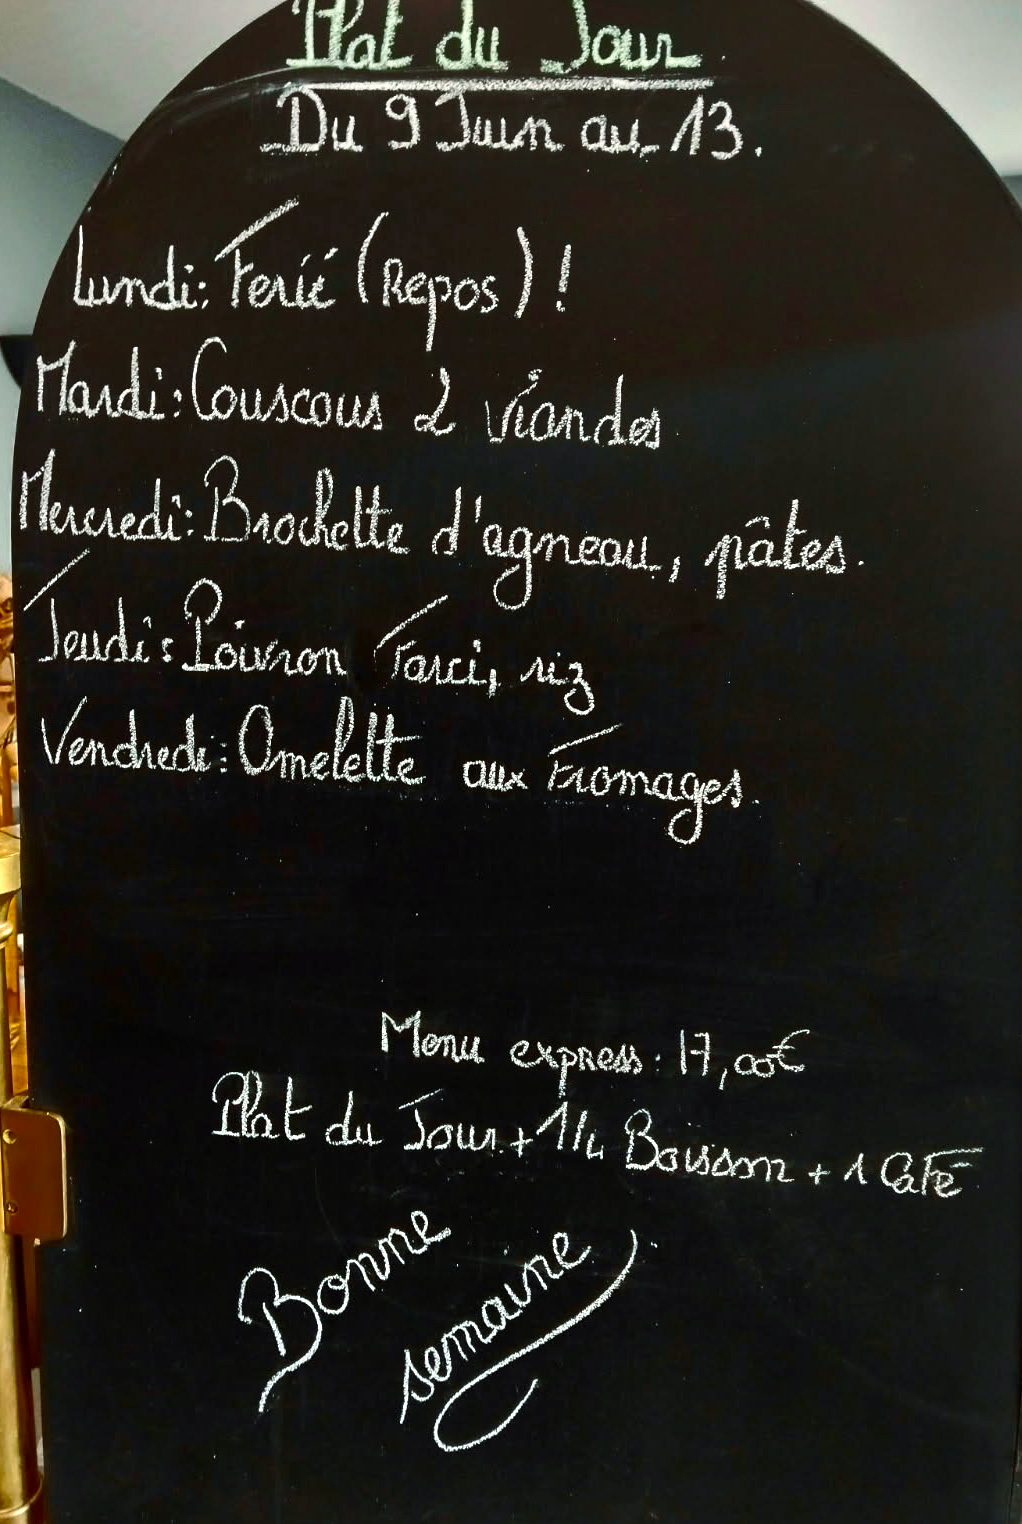 Plat du Jour
Du 9 Juin au 13.
Lundi: Ferié (Repos)!
Mardi: Couscous 2 viandes
Mercredi: Brochette d'agneau, pâtes.
Jeudi: Poivron Farci, riz
Vendredi: Omelette aux Fromages.
Menu express: 17,00€
Plat du Jour + 1/4 Boisson + 1 Café
Bonne
semaine